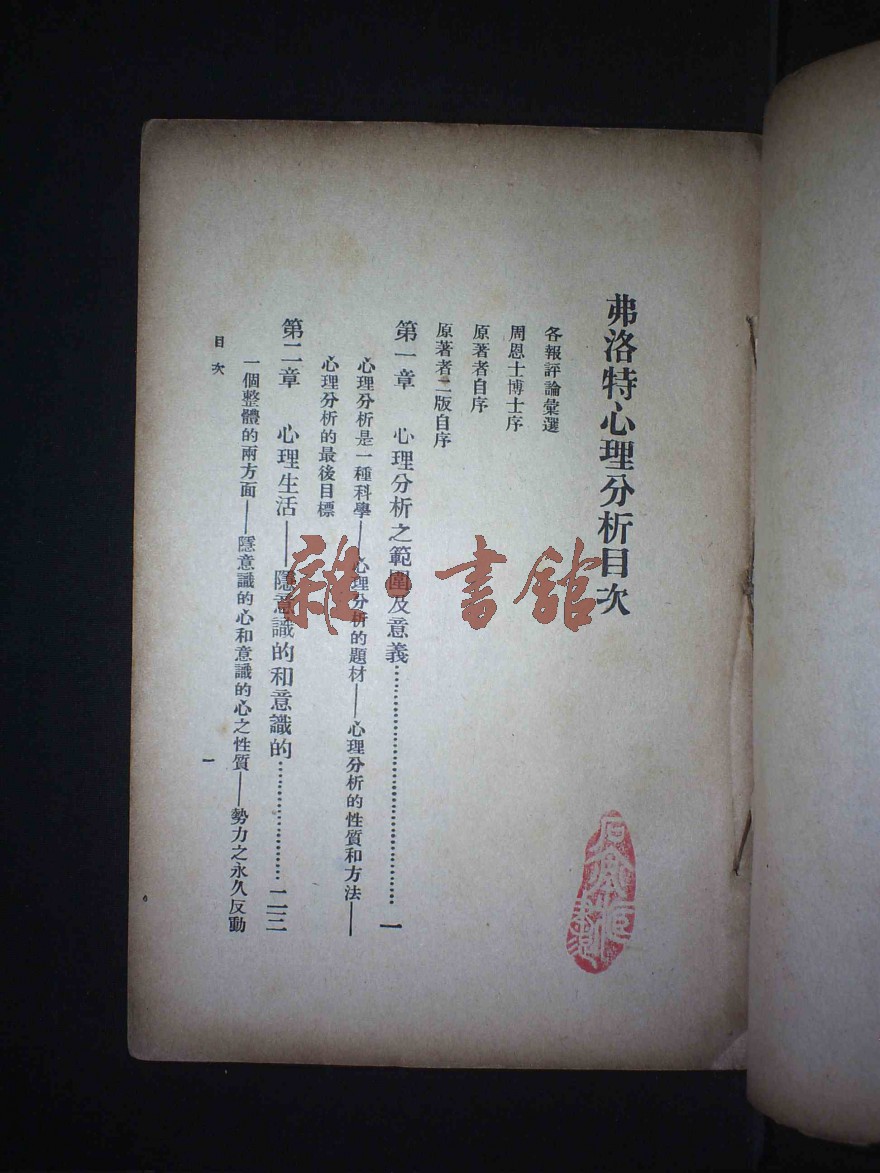 弗洛特心理分析目次
各報評論彙選
周恩士博士序
原著者自序
原著者二版自序
第一章 心理分析之範圍及意義……………………………一
心理分析是一種科學——心理分析的題材——心理分析的性質和方法——
心理分析的最後目標
第二章 心理生活——隱意識的和意識的……………二三
一個整體的兩方面——隱意識的心和意識的心之性質——勢力之永久反動
目次
一
雜·書館